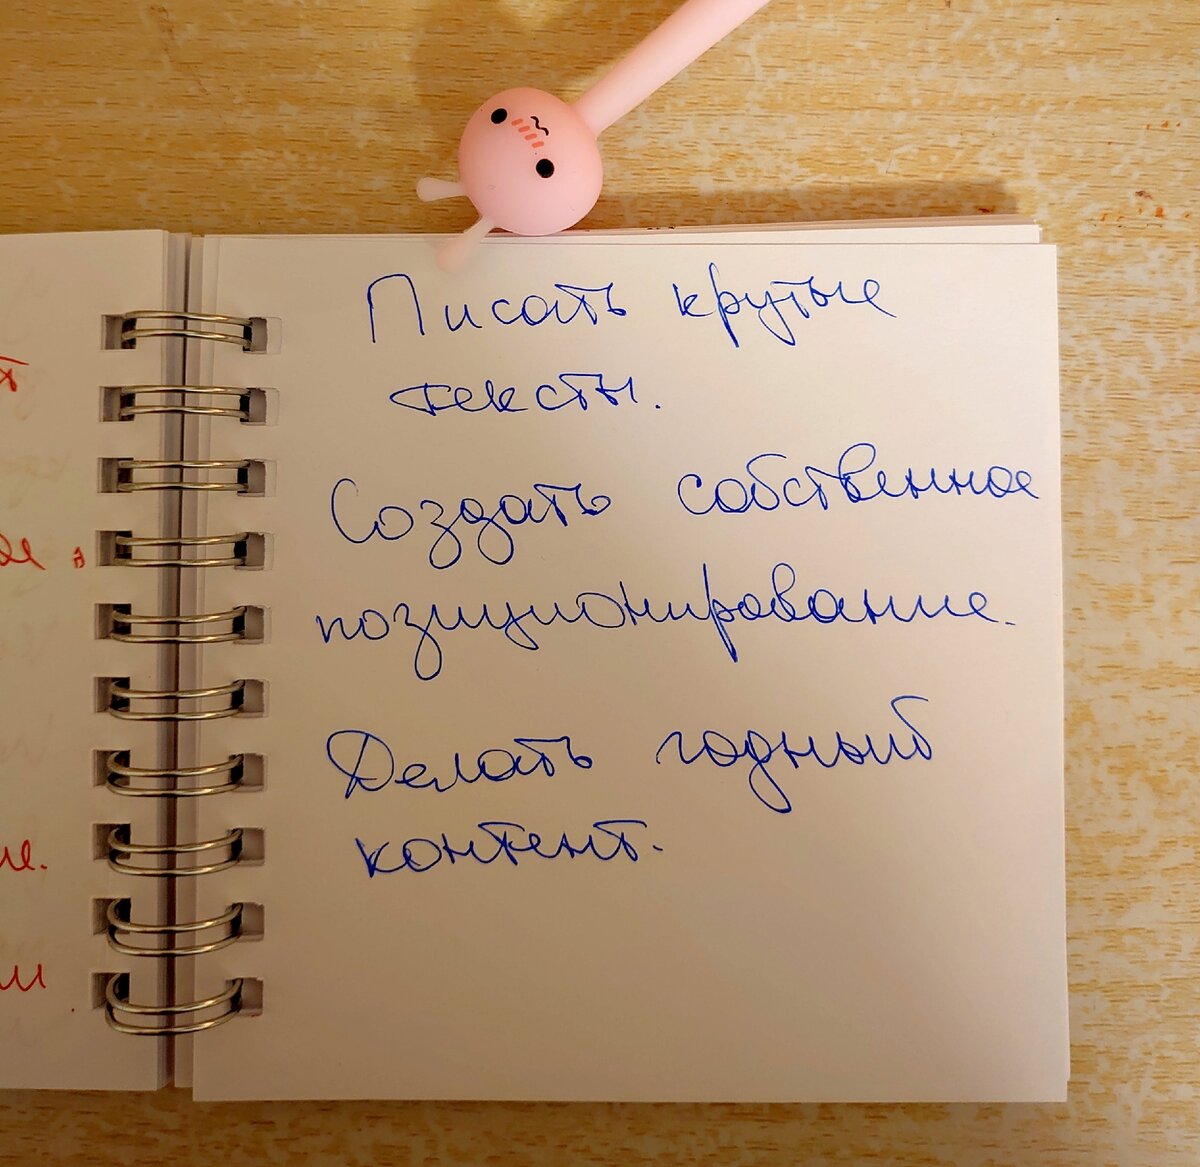 Писать крутые
тексты.
Создать собственное
позиционирование.
Делать годный
контент.